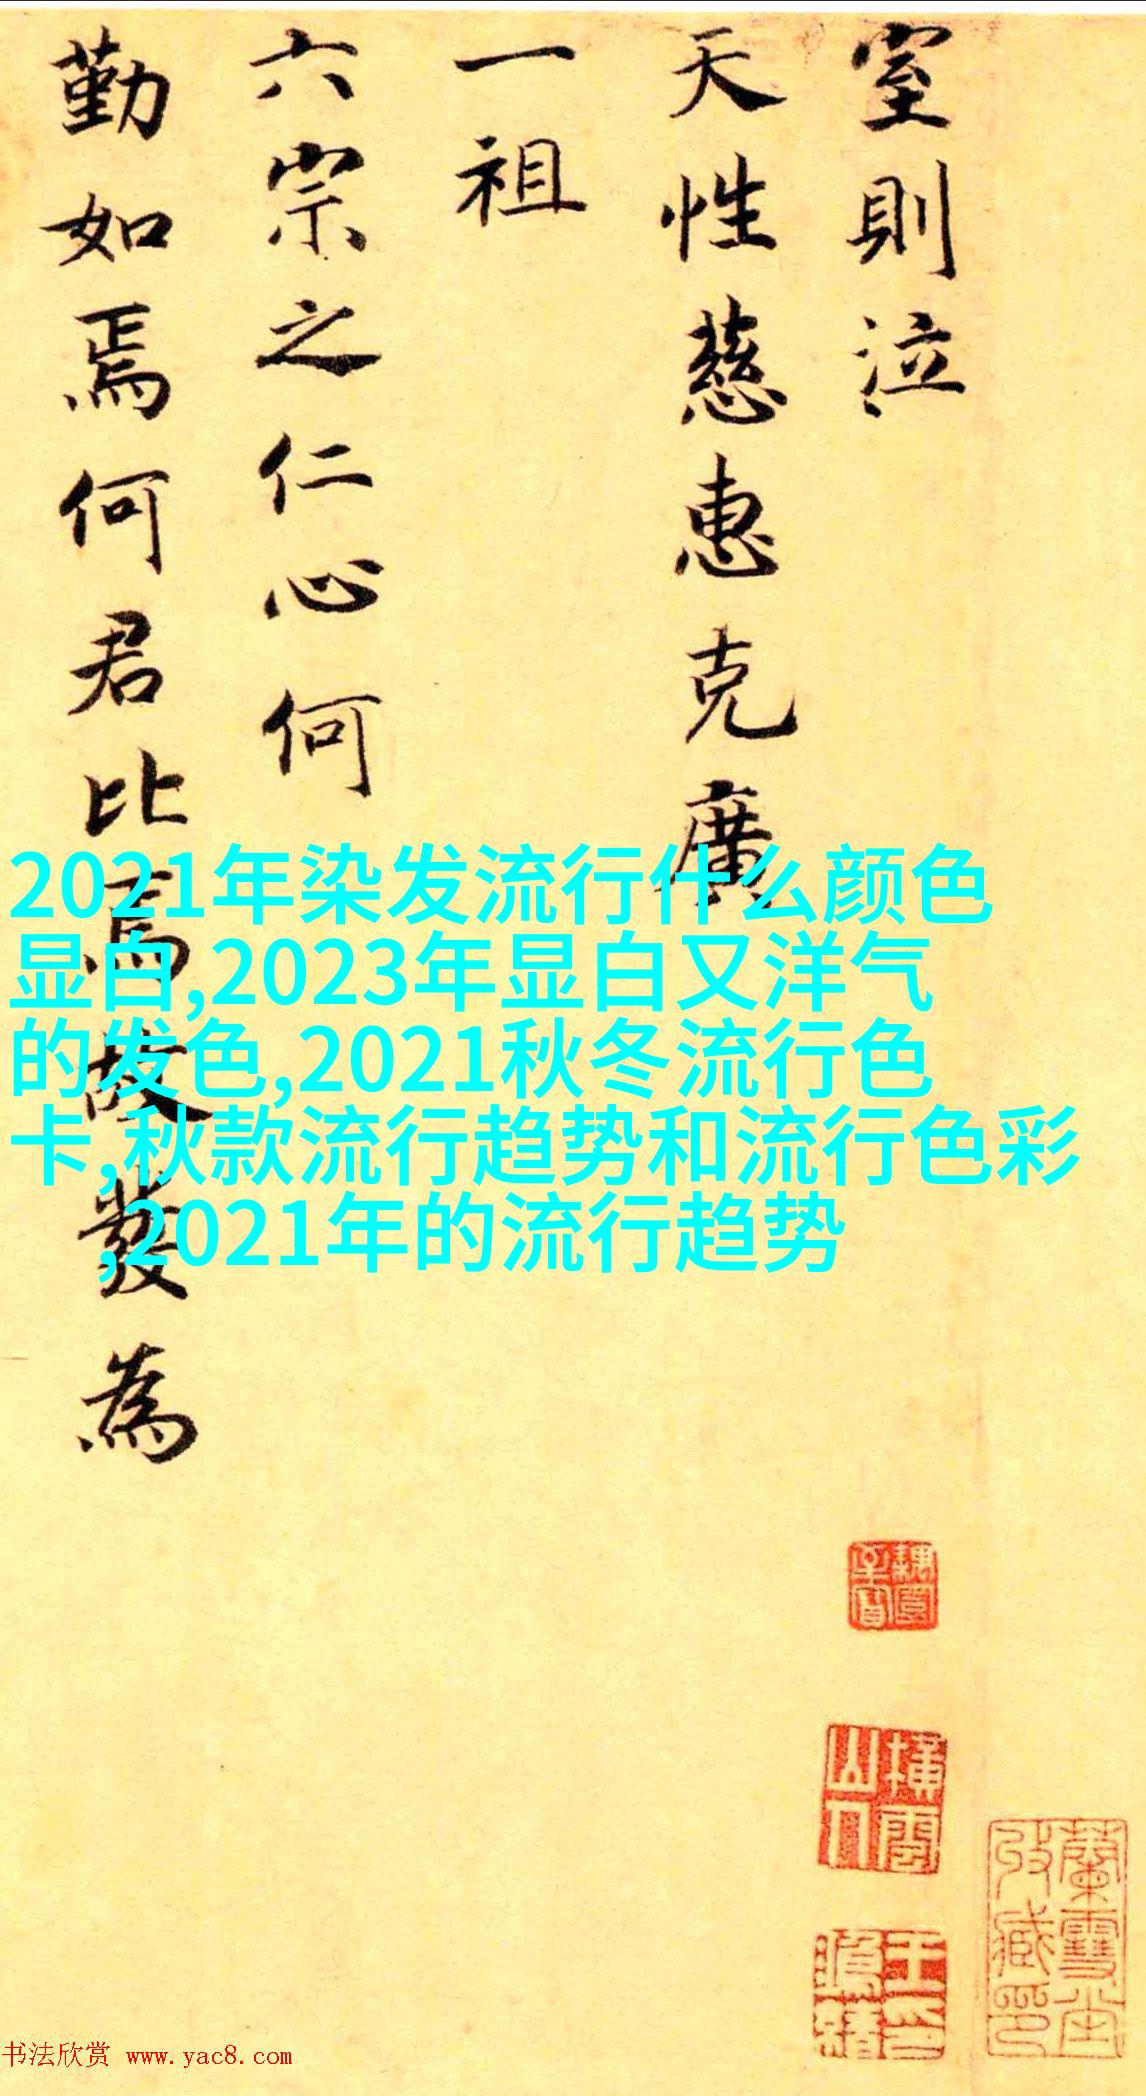 室則泣
天性慈惠克廣
一祖
六宗之仁心何
勤如焉何君比焉故發為
2021年染发流行什么颜色
显白,2023年显白又洋气
的发色,2021秋冬流行色
卡,秋款流行趋势和流行色彩
,2021年的流行趋势
書法欣赏 www.yac8.com